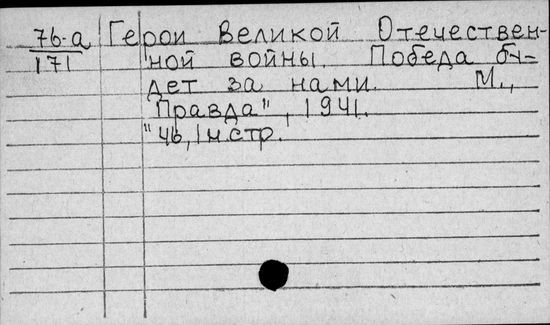 76-а Герои Великой Отечествен-
171 ной войны. Победа бу=
дет за нами. М.,
"Правда", 1941.
46, стр.